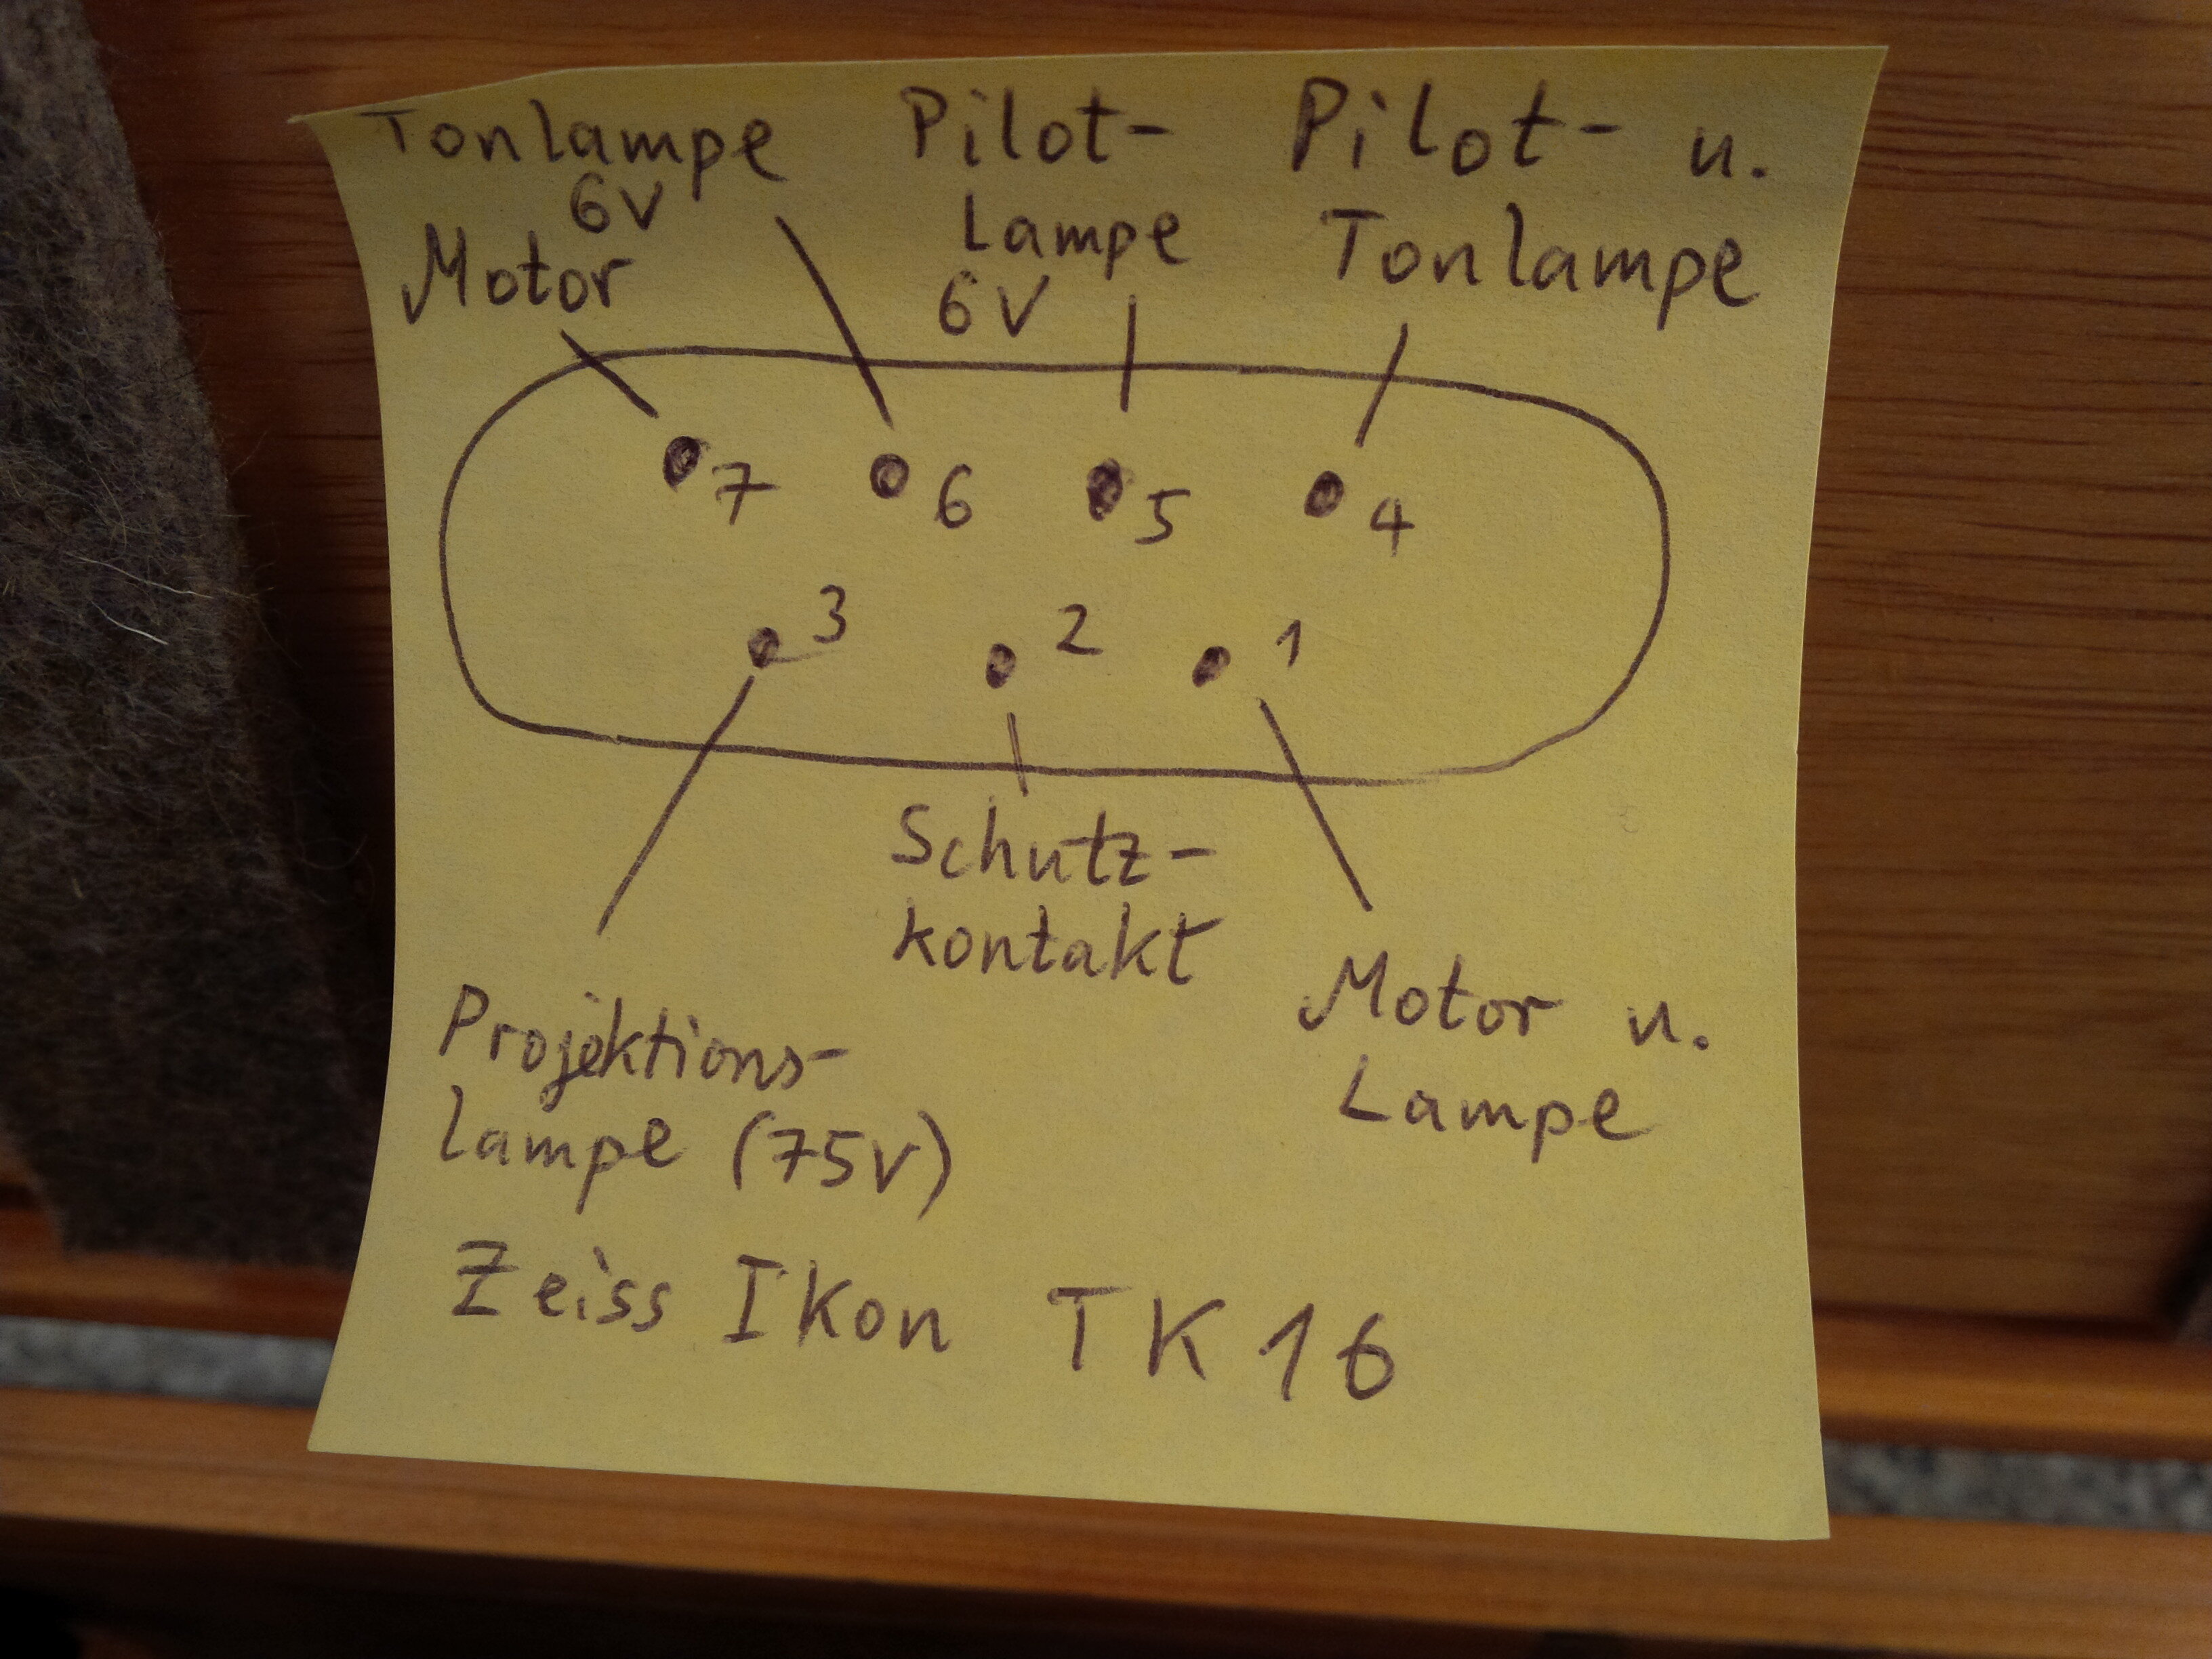 Tonlampe
6V
Motor
Pilot-
Lampe
6V
Pilot- u.
Tonlampe
7 6 5 4
3 2 1
Schutz-
kontakt
Projektions-
lampe (75V)
Motor u.
Lampe
Zeiss Ikon TK 16